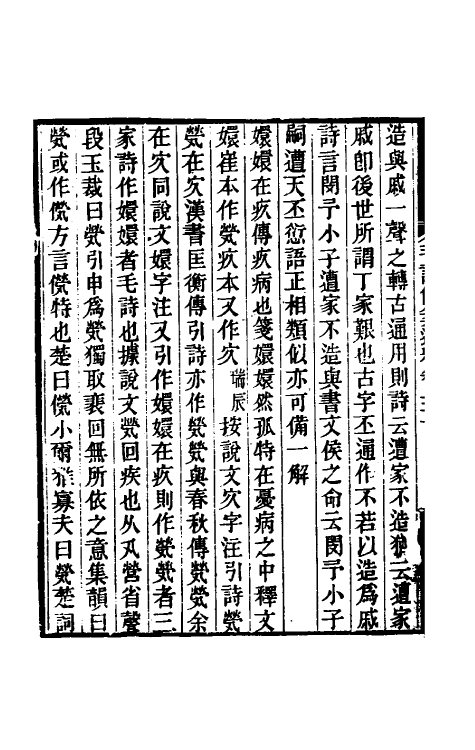 造與戚一聲之轉古通用則詩云遭家不造猶云遭家
戚卽後世所謂丁家艱也古字丕通作不若以造爲戚
詩言閔予小子遭家不造與書文侯之命云閔予小子
嗣遭天丕愆語正相類似亦可備一解
嬛嬛在疚傳疚病也箋嬛嬛然孤特在憂病之中釋文
嬛崔本作煢疚本又作㝌 瑞辰 按說文㝌字注引詩煢
煢在㝌漢書匡衡傳引詩亦作煢煢與春秋傳煢煢余
在㝌同說文嬛字注又引作嬛嬛在疚則作煢煢者三
家詩作嬛嬛者毛詩也據說文煢回疾也从卂營省聲
段玉裁曰煢引申爲煢獨取裵回無所依之意集韻曰
煢或作㷀方言㷀特也楚曰㷀小爾雅寡夫曰煢楚詞